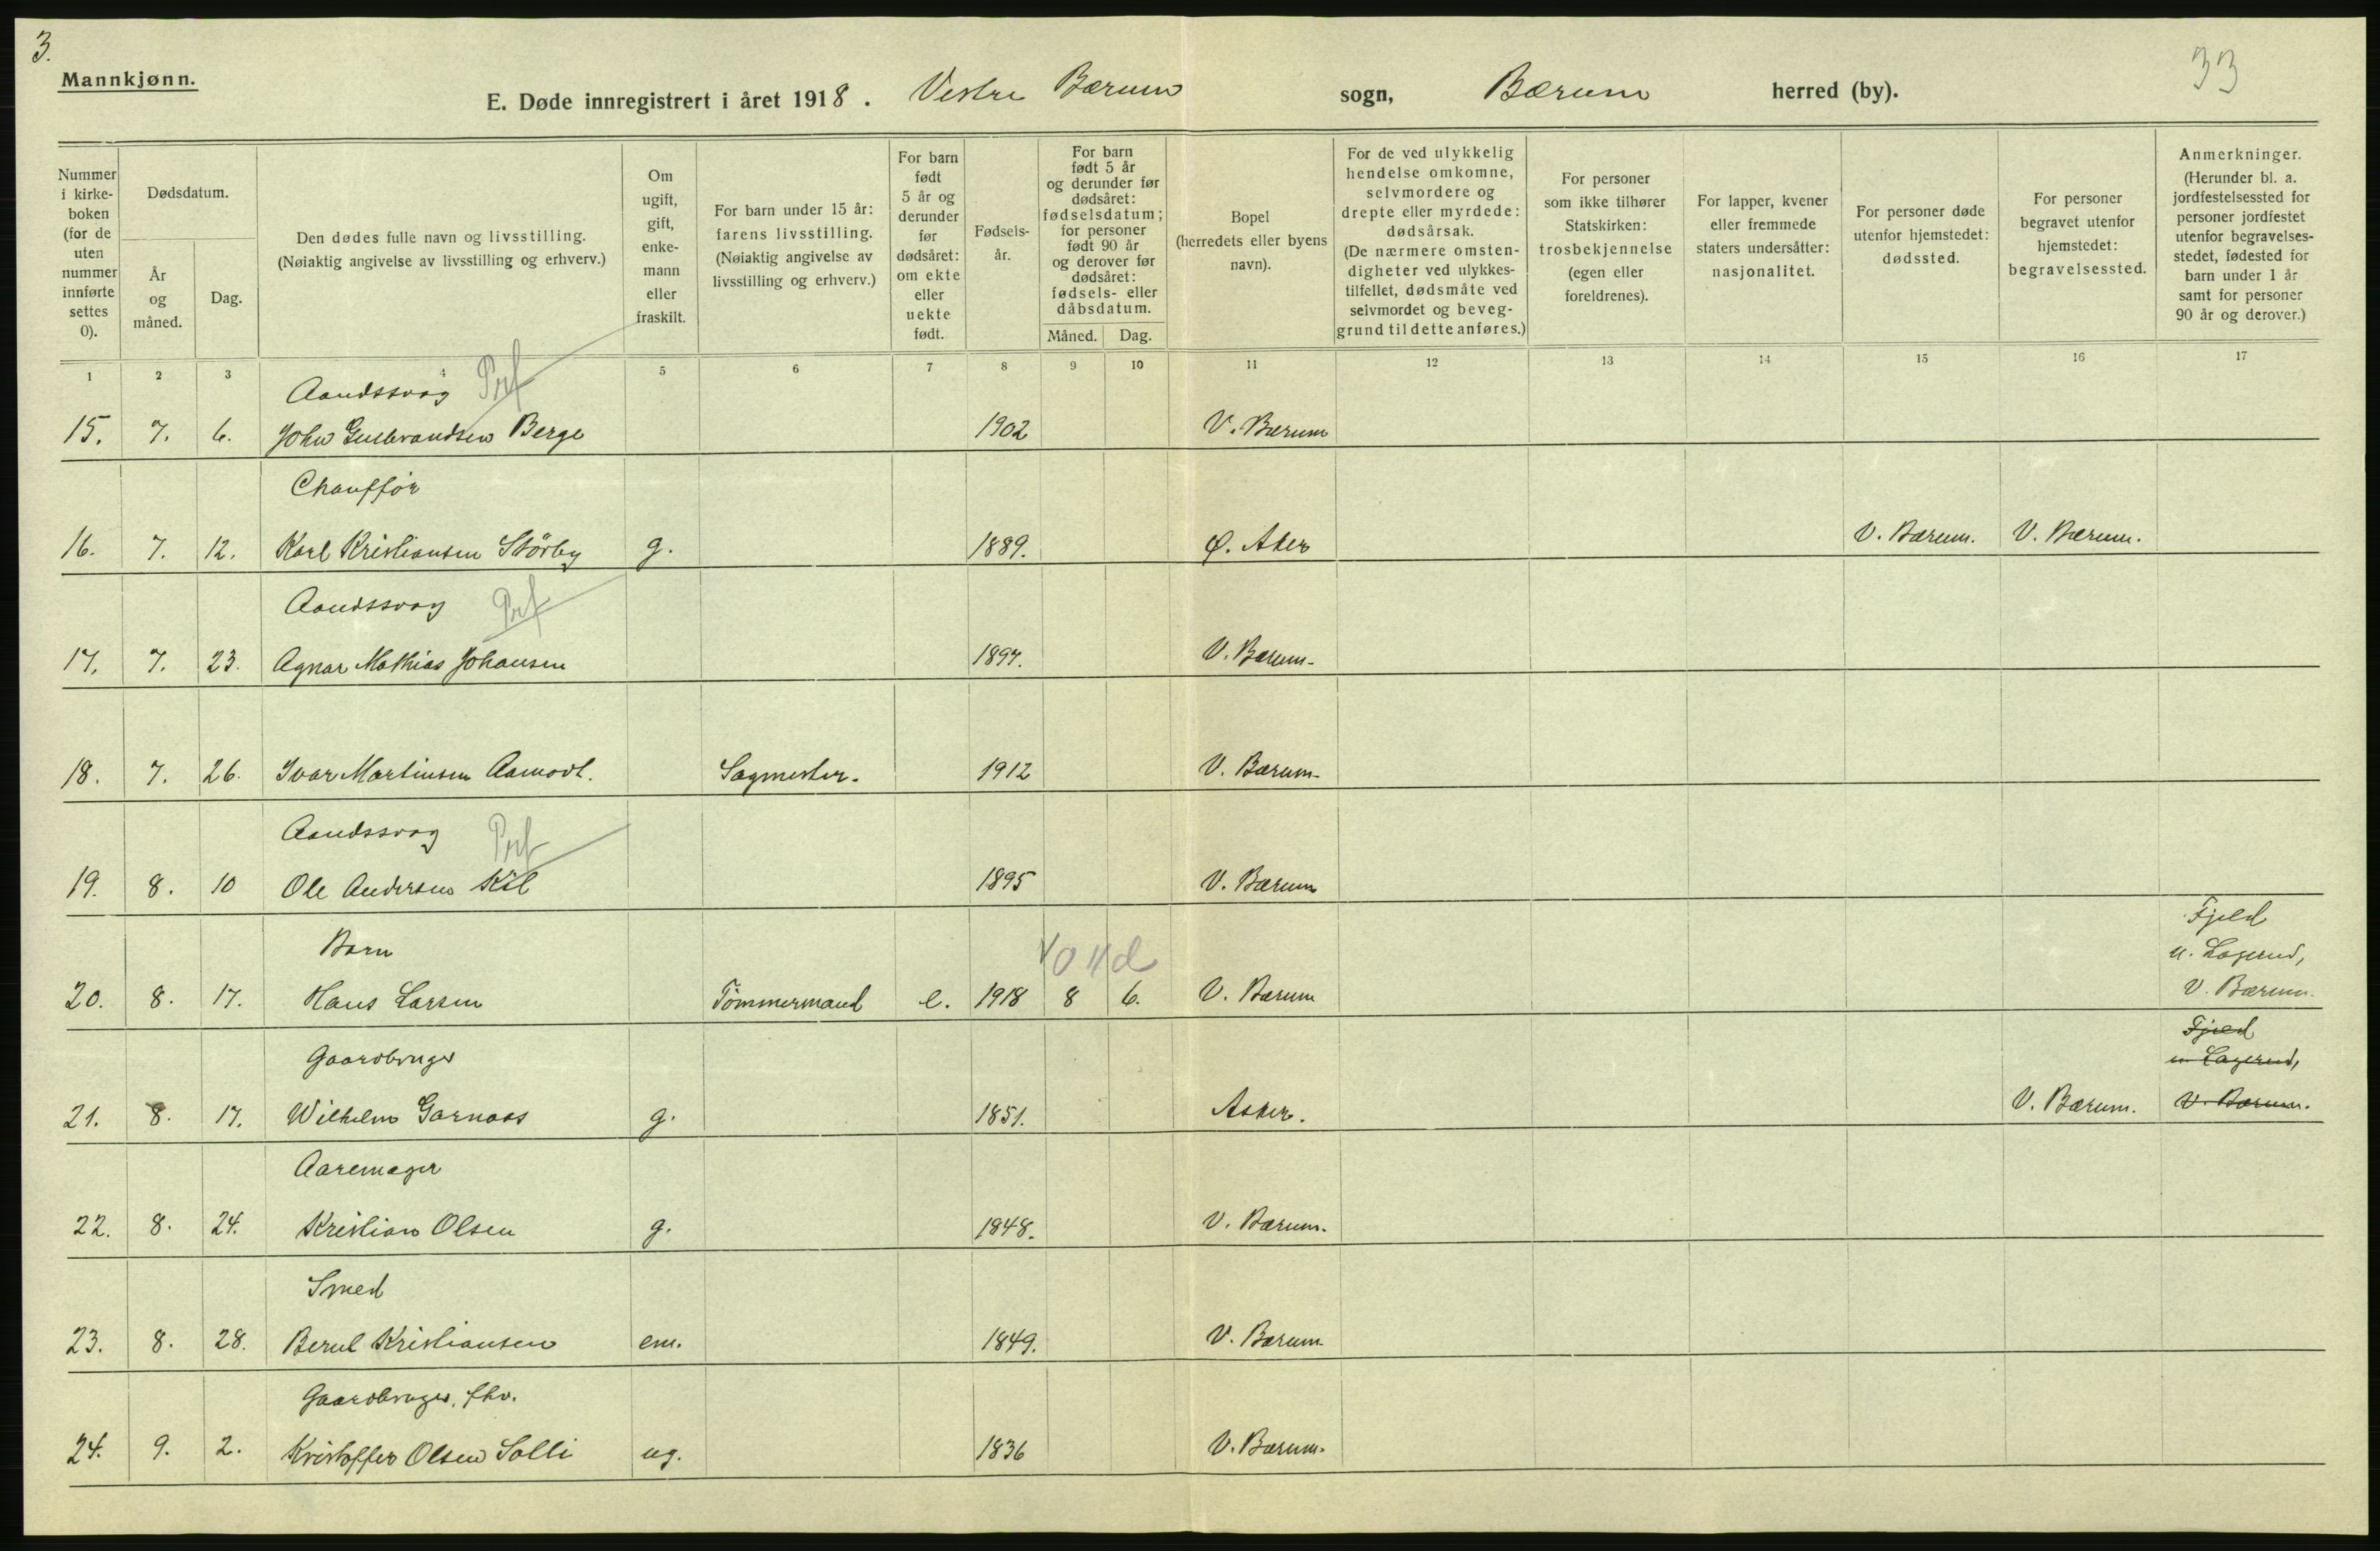 3.
33
Mannkjønn.
E. Døde innregistrert i året 1918. Vestre Bærum sogn, Bærum herred (by).
Nummer i kirke- boken (for de uten nummer innførte settes 0).
Dødsdatum.
År og måned.
Dag.
Den dødes fulle navn og livsstilling.
(Nøiaktig angivelse av livsstilling og erhverv.)
Om ugift, gift, enke- mann eller fraskilt.
For barn under 15 år: farens livsstilling. (Nøiaktig angivelse av livsstilling og erhverv.)
For barn født 5 år og derunder før dødsåret: om ekte eller uekte født.
Fødsels- år.
For barn født 5 år og derunder før dødsåret: fødselsdatum; for personer født 90 år og derover før dødsåret: fødsels- eller dåbsdatum.
Måned. Dag.
Bopel (herredets eller byens navn).
For de ved ulykkelig hendelse omkomne, selvmordere og drepte eller myrdede: dødsårsak. (De nærmere omsten- digheter ved ulykkes- tilfellet, dødsmåte ved selvmordet og beveg- grund til dette anføres.)
For personer som ikke tilhører Statskirken: trosbekjennelse (egen eller foreldrenes).
For lapper, kvener eller fremmede staters undersåtter: nasjonalitet.
For personer døde utenfor hjemstedet: dødssted.
For personer begravet utenfor hjemstedet: begravelsessted.
Anmerkninger. (Herunder bl. a. jordfestelsessted for personer jordfestet utenfor begravelses- stedet, fødested for barn under 1 år samt for personer 90 år og derover.)
1 2 3 4 5 6 7 8 9 10 11 12 13 14 15 16 17
Aandssvag
15. 7. 6. John Gulbrandsen Berge 1902 V. Bærum
Chauffør
16. 7. 12. Karl Kristiansen Störby g. 1889. Ø. Aker V. Bærum. V. Bærum.
Aandssvag
17. 7. 23. Agnar Mathias Johansen 1897. V. Bærum.
18. 7. 26. Ivar Martinsen Aamodt. Sagmester. 1912 V. Bærum
Aandssvag
19. 8. 10 Ole Andersen Kil 1895 V. Bærum
Barn
Fjeld
u. Lagerud,
20. 8. 17. Hans Larsen Tömmermand e. 1918 8 6. V. Bærum V. Bærum.
Gaardbruger
Fjeld
u. Lagerud,
21. 8. 17. Wilhelm Garnaas g. 1851. Asker. V. Bærum. V. Bærum.
Aaremager
22. 8. 24. Kristian Olsen g. 1848. V. Bærum.
Smed
23. 8. 28. Bernt Kristiansen em. 1849. V. Bærum
Gaardbruger, fhv.
24. 9. 2. Kristoffer Olsen Solli ug. 1836 V. Bærum.